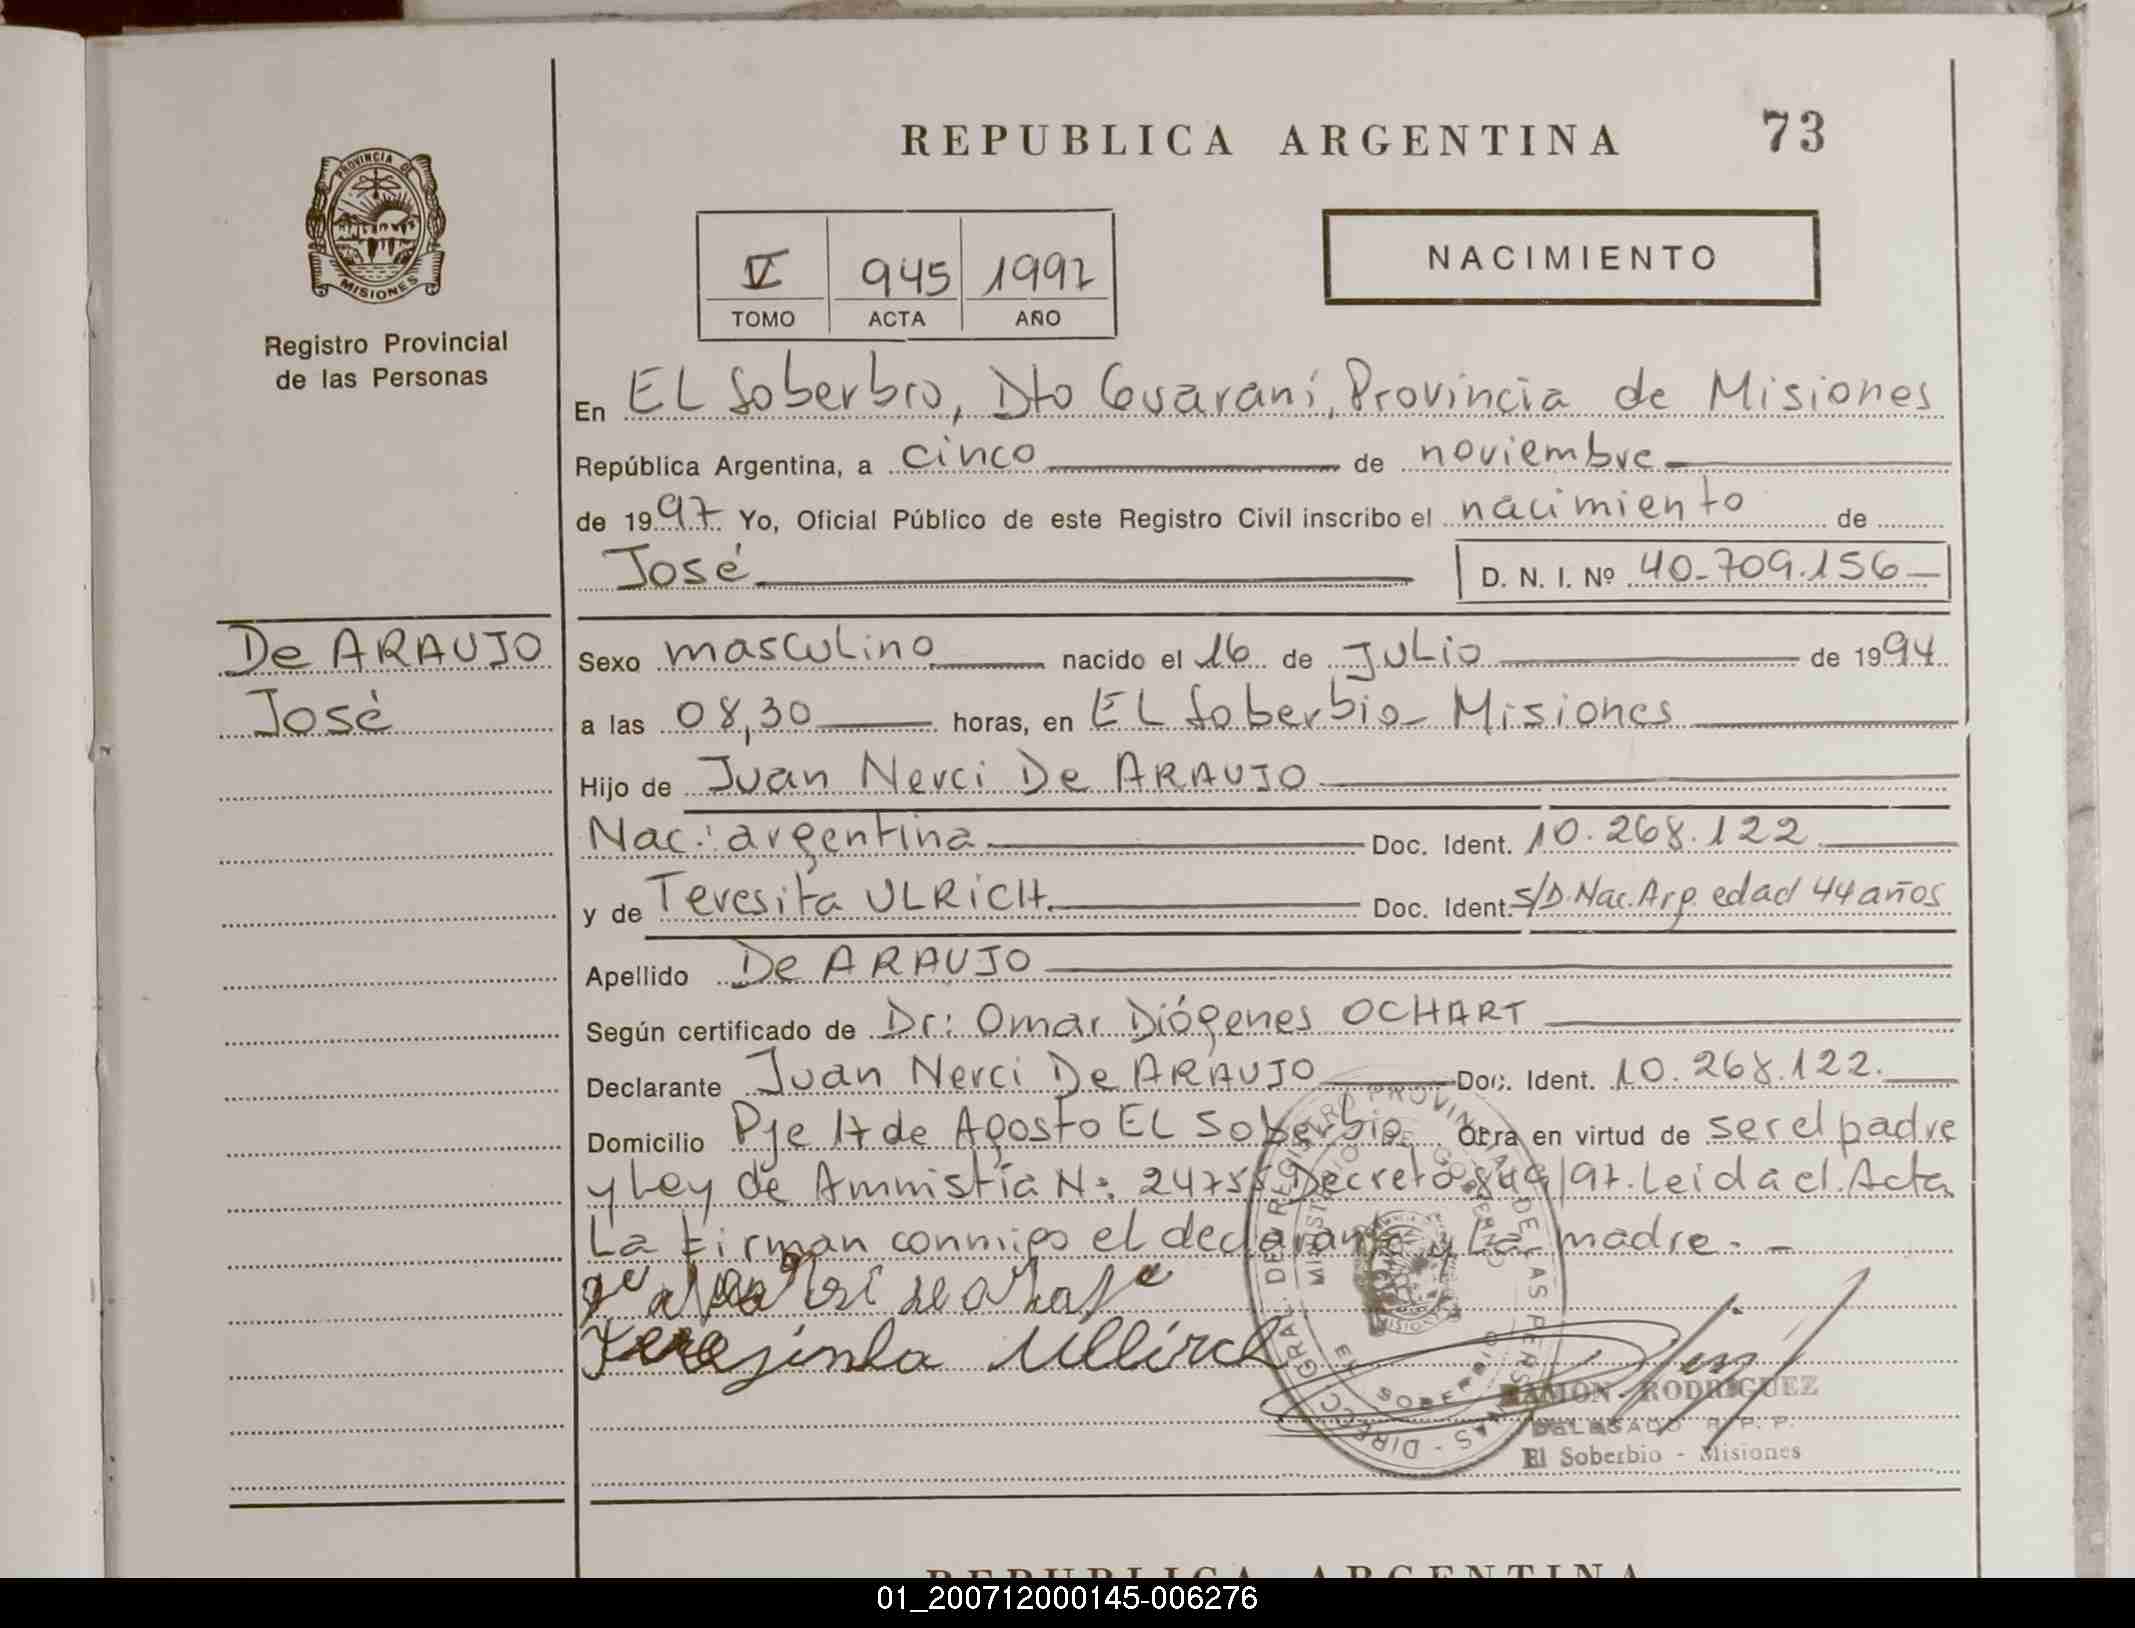 REPUBLICA ARGENTINA 73
PROVINCIA DE
MISIONES
Registro Provincial
de las Personas
V 945 1997
TOMO ACTA AÑO
NACIMIENTO
En EL Soberbio, Dto Guaraní, Provincia de Misiones
República Argentina, a cinco de noviembre
de 1997 Yo, Oficial Público de este Registro Civil inscribo el nacimiento de
José D. N. I. Nº 40-709.156
De ARAUJO
José
Sexo masculino nacido el 16 de JULio de 1994
a las 08,30 horas, en EL Soberbio - Misiones
Hijo de Juan Nerci De ARAUJO
Nac: argentina Doc. Ident. 10.268.122
y de Teresita ULRICH Doc. Ident. S/D. Nac. Arg. edad 44 años
Apellido De ARAUJO
Según certificado de Dr: Omar Diógenes OCHART
Declarante Juan Nerci De ARAUJO Doc. Ident. 10.268.122.
Domicilio Pje 17 de Agosto EL Soberbio Obra en virtud de ser el padre
y Ley de Amnistía N: 24755 Decreto 849/97. Leida el Acta
La firman conmigo el declarante y La madre. -
Teresinha Ullirch
DIRECC. GRAL. DE REGISTRO PROVINCIAL DE LAS PERSONAS
MINISTERIO DE GOBIERNO
MISIONES
SOBERBIO
RAMON RODRIGUEZ
DELEGADO R. P. P.
El Soberbio - Misiones
REPUBLICA ARGENTINA
01_200712000145-006276